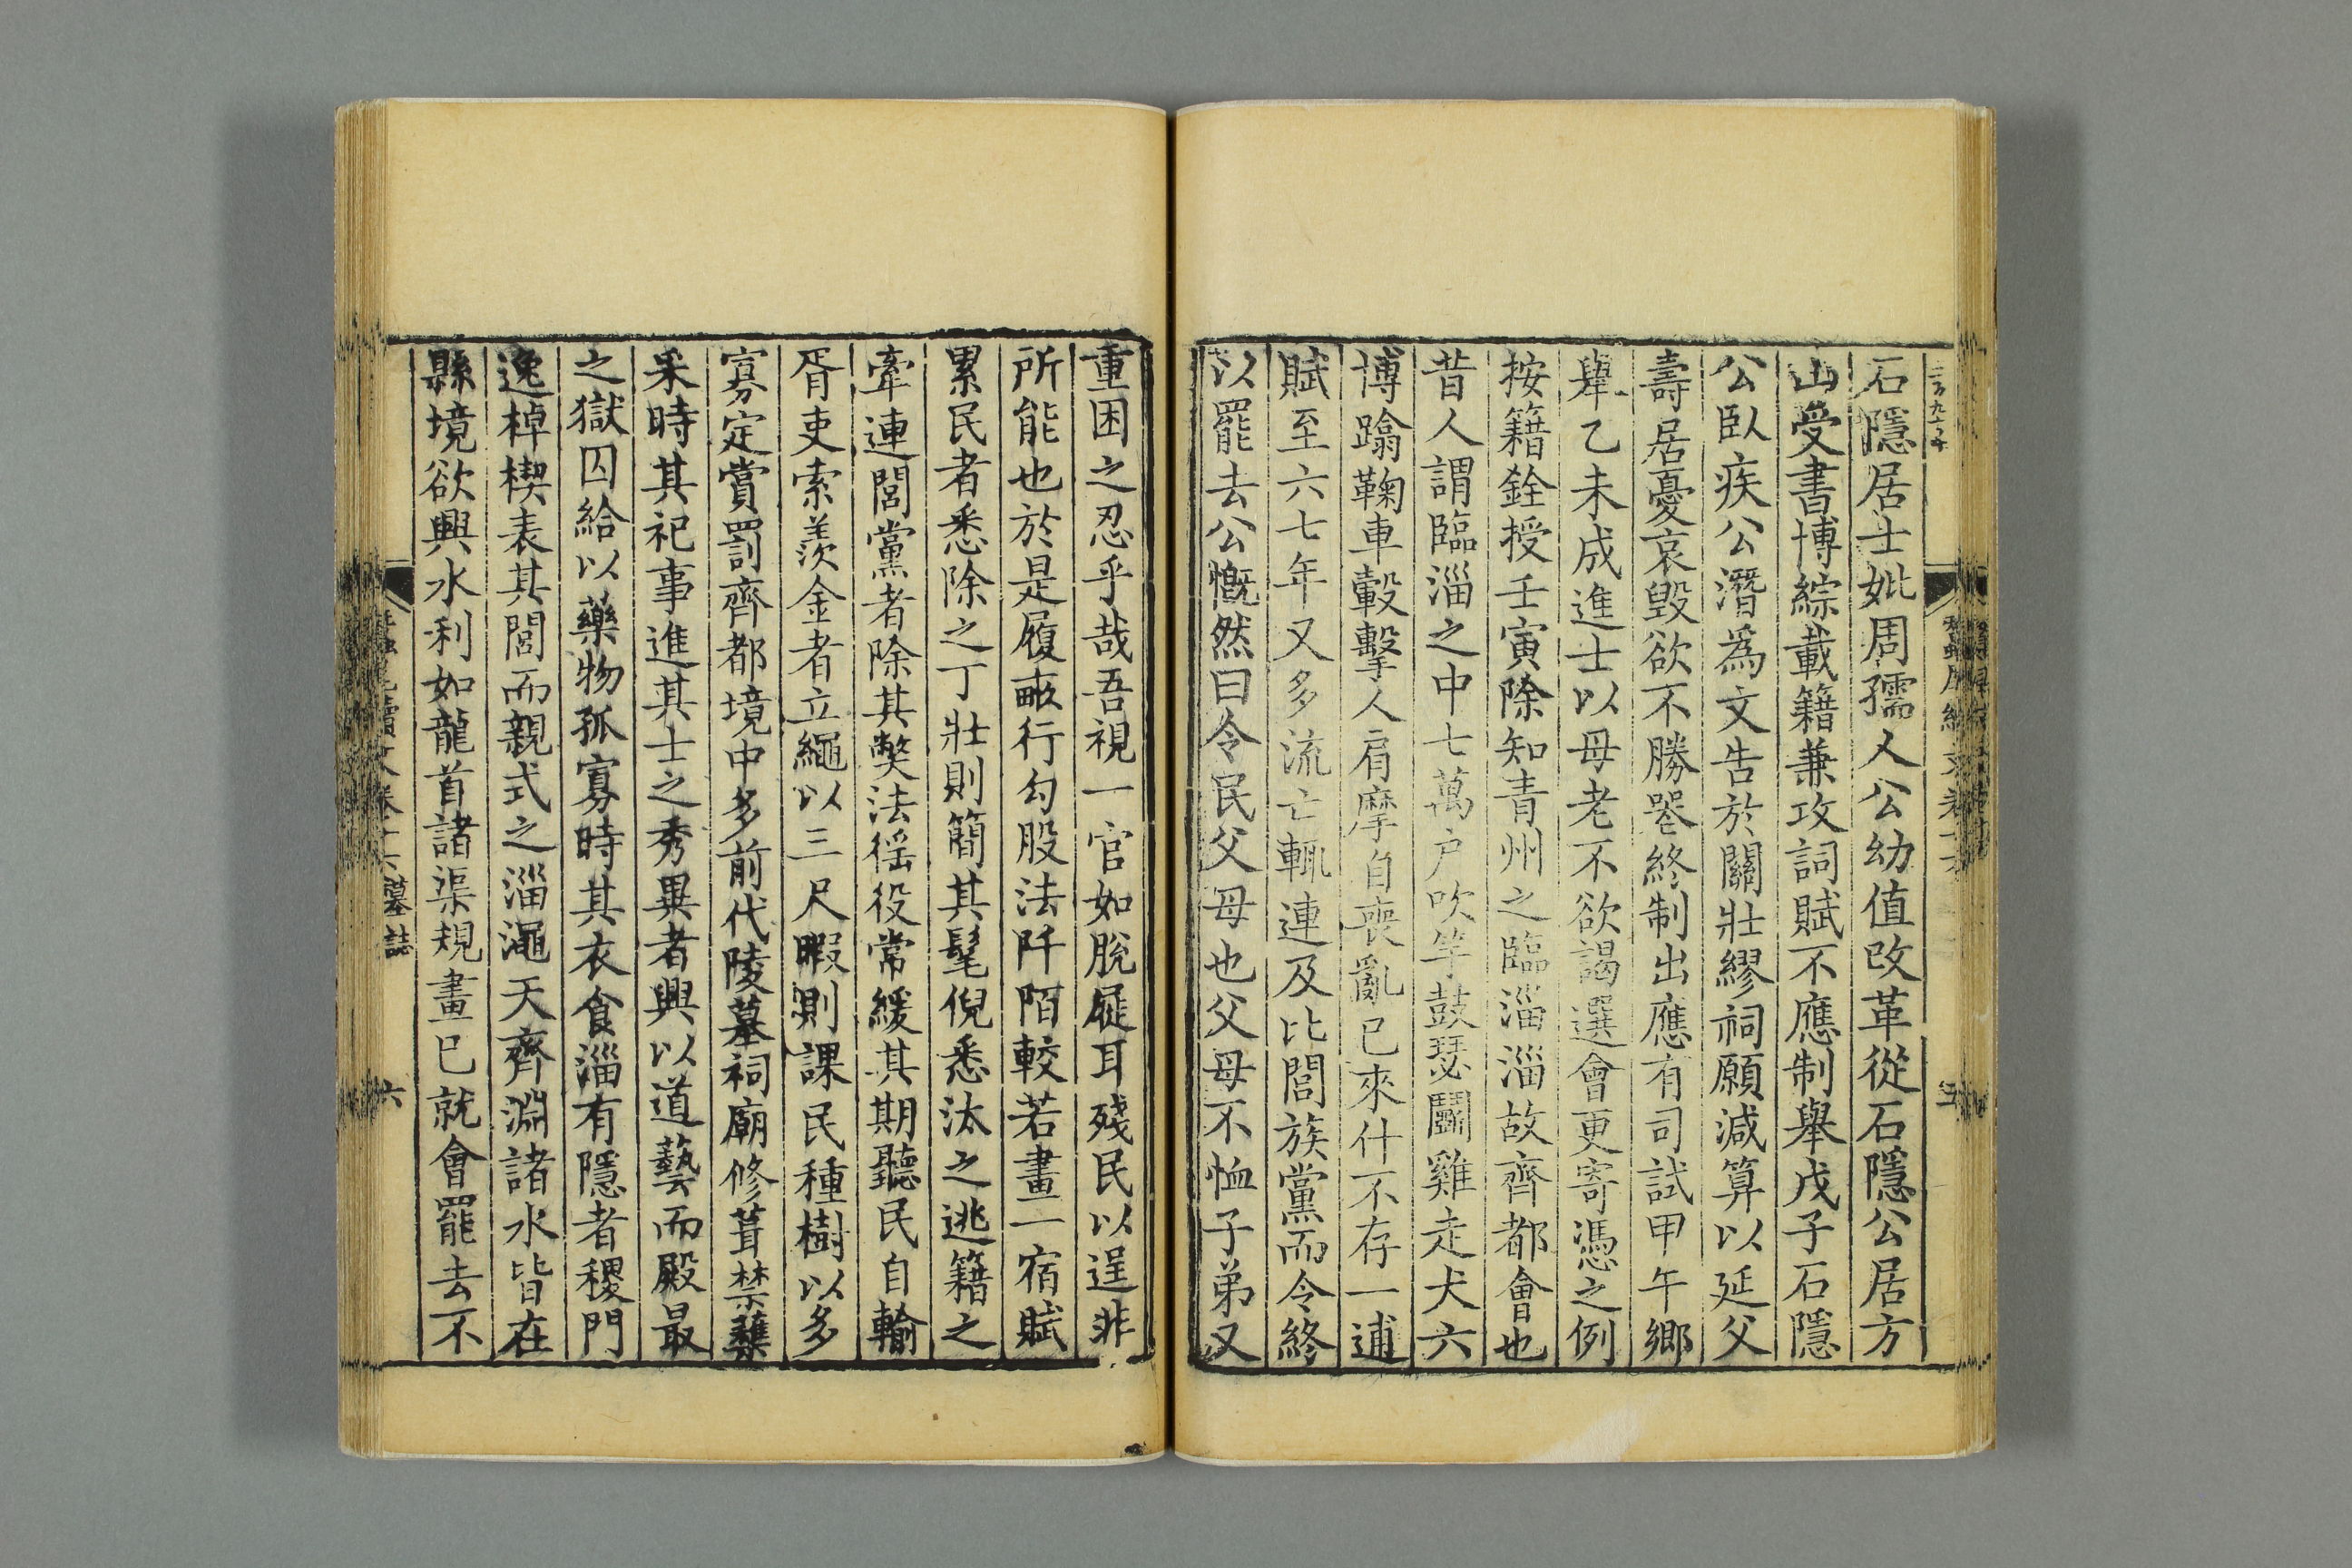 石隱居士妣周孺人公幼值改革從石隱公居方
山受書博綜載籍兼攻詞賦不應制舉戊子石隱
公臥疾公潛爲文告於關壯繆祠願減算以延父
壽居憂哀毀欲不勝喪終制出應有司試甲午鄉
舉乙未成進士以母老不欲謁選會更寄憑之例
按籍銓授壬寅除知青州之臨淄淄故齊都會也
昔人謂臨淄之中七萬户吹竽鼓瑟鬭雞走犬六
博蹹鞠車轂擊人肩摩自喪亂已來什不存一逋
賦至六七年又多流亡輒連及比閭族黨而令終
以罷去公慨然曰令民父母也父母不恤子弟又
重困之忍乎哉吾視一官如脫屣耳殘民以逞非
所能也於是履畝行勾股法阡陌較若畫一宿賦
累民者悉除之丁壯則簡其髦倪悉汰之逃籍之
牽連閭黨者除其獘法徭役常緩其期聽民自輸
胥吏索羨金者立繩以三尺暇則課民種樹以多
寡定賞罰齊都境中多前代陵墓祠廟修葺禁蘀
采時其祀事進其士之秀異者興以道藝而殿最
之獄囚給以藥物孤寡時其衣食淄有隱者稷門
逸棹楔表其閭而親式之淄澠天齊淵諸水皆在
縣境欲興水利如龍首諸渠規畫已就會罷去不
蠶尾續文卷十六 墓誌
六